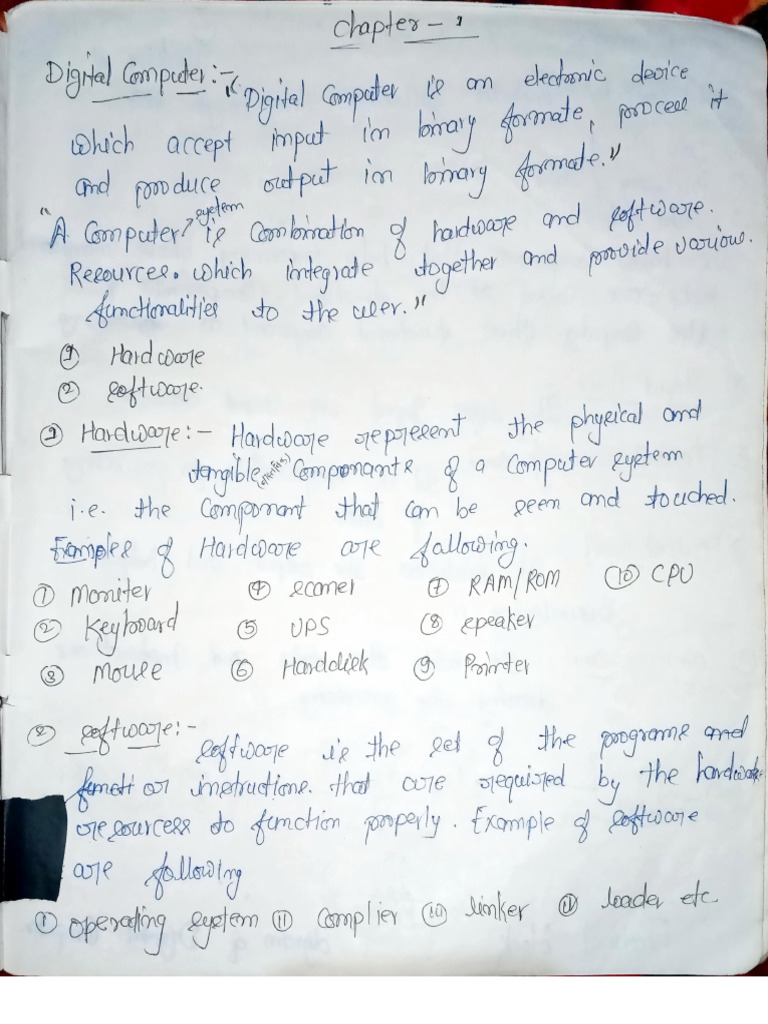 Chapter - 1
Digital Computer :- "Digital Computer is an electronic device
which accept input in binary formate, process it
and produce output in binary formate."
"A Computer system is Combination of hardware and software.
Resources. which integrate together and provide various.
functionalities to the user."
① Hardware
② software.
① Hardware :- Hardware represent the physical and
tangible Componants of a Computer system
i.e. the Componant that can be seen and touched.
Examples of Hardware are fallowing.
① Moniter ④ scaner ⑦ RAM/ROM ⑩ CPU
② Keyboard ⑤ UPS ⑧ speaker
③ Mouse ⑥ Harddisk ⑨ Printer
② software :-
software is the set of the programs and
or instructions. that are required by the hardware
resourcess to function properly. Example of software
are fallowing
① operating system ⑪ Complier ⑩ linker loader etc.